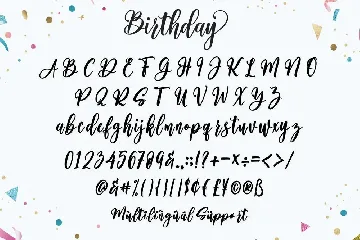 Birthday
A B C D E F G H I J K L M N O
P Q R S T U V W X Y Z
abcdefghijklmnopqrstuvwxyz
0123456789&.,:;!?+-×÷=<>/
@&#%()[]{}¢£¥©®ß
Multilingual Support